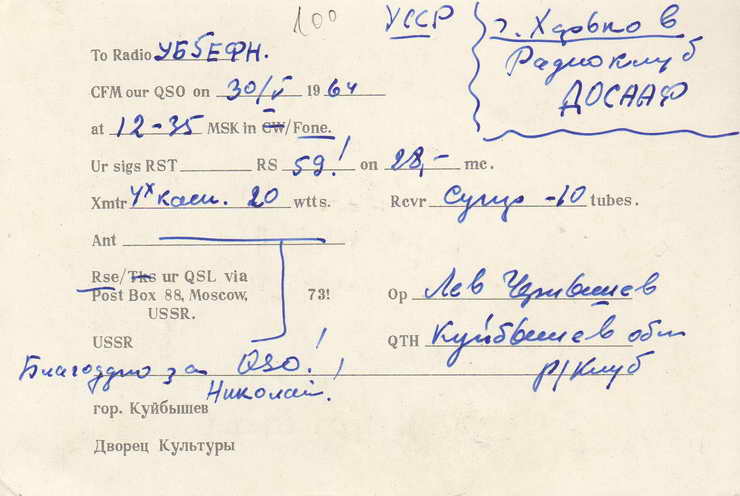 100
УССР
г. Харьков
Радиоклуб
ДОСААФ
To Radio УБ5ЕФН.
CFM our QSO on 30/V 1964
at 12-35 MSK in CW/Fone.
Ur sigs RST RS 59! on 28,- mc.
Xmtr 4х каск. 20 wtts. Rcvr Супер -10 tubes.
Ant
Rse/Tks ur QSL via
Post Box 88, Moscow, 73! Op Лев
USSR.
USSR QTH Куйбышев обл
Благодарю за QSO! р/клуб
Николай!
гор. Куйбышев
Дворец Культуры